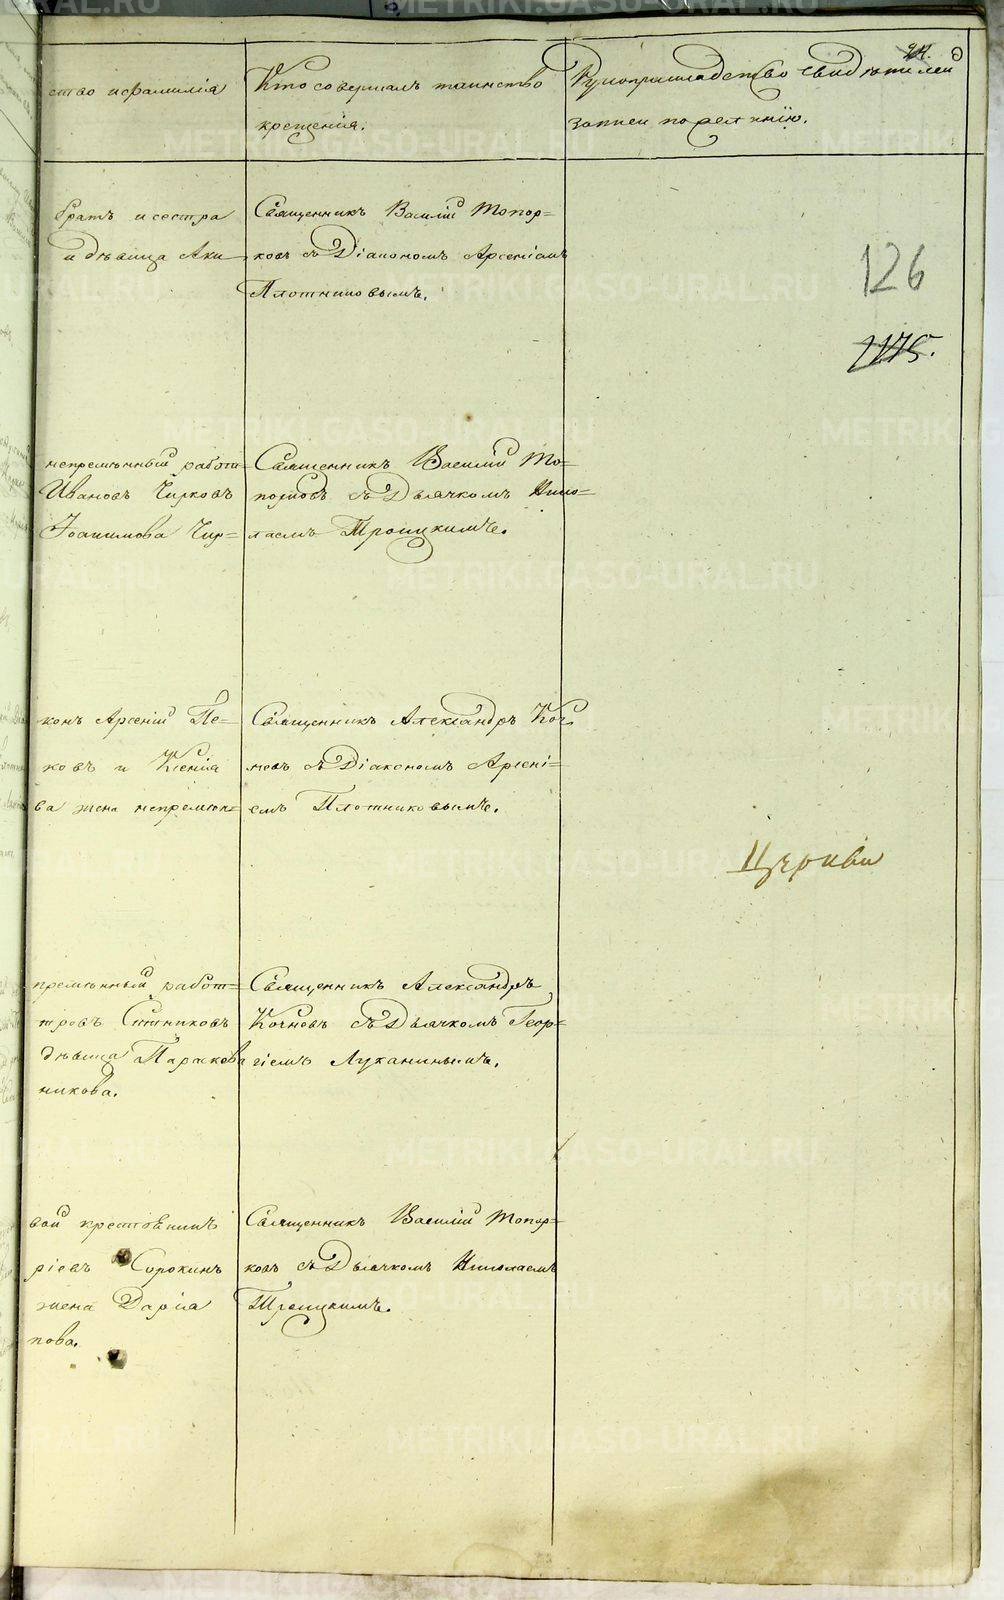 24.
ство и фамилія
Кто совершалъ таинство
крещенія.
Рукоприкладство свидѣтелей
записи по желанію.
братъ и сестра
и дѣвица Аки
Священникъ Василій Топор=
ковъ съ Діакономъ Арсеніемъ
Плотниковымъ.
126
1175.
непремѣнный работн=
Ивановъ Чирковъ
Іоакимова Чир=
Священникъ Василій То=
порковъ съ Дьячкомъ Нико=
лаемъ Троицкимъ.
конъ Арсеній Пе=
ковъ и Ксенія
ва жена непремѣн=
Священникъ Александръ Коч
невъ съ Діакономъ Арсені=
емъ Плотниковымъ.
Церкви
премѣнный работ=
тровъ Ситниковъ
дѣвица Параскева
никова.
Священникъ Александръ
Кочневъ съ Дьячкомъ Геор=
гіемъ Луканинымъ.
вой крестовникъ
ріевъ Сорокинъ
жена Дарія
пова.
Священникъ Василій Топор=
ковъ съ Дьячкомъ Николаемъ
Троицкимъ.
METRIKI.GASO-URAL.RU